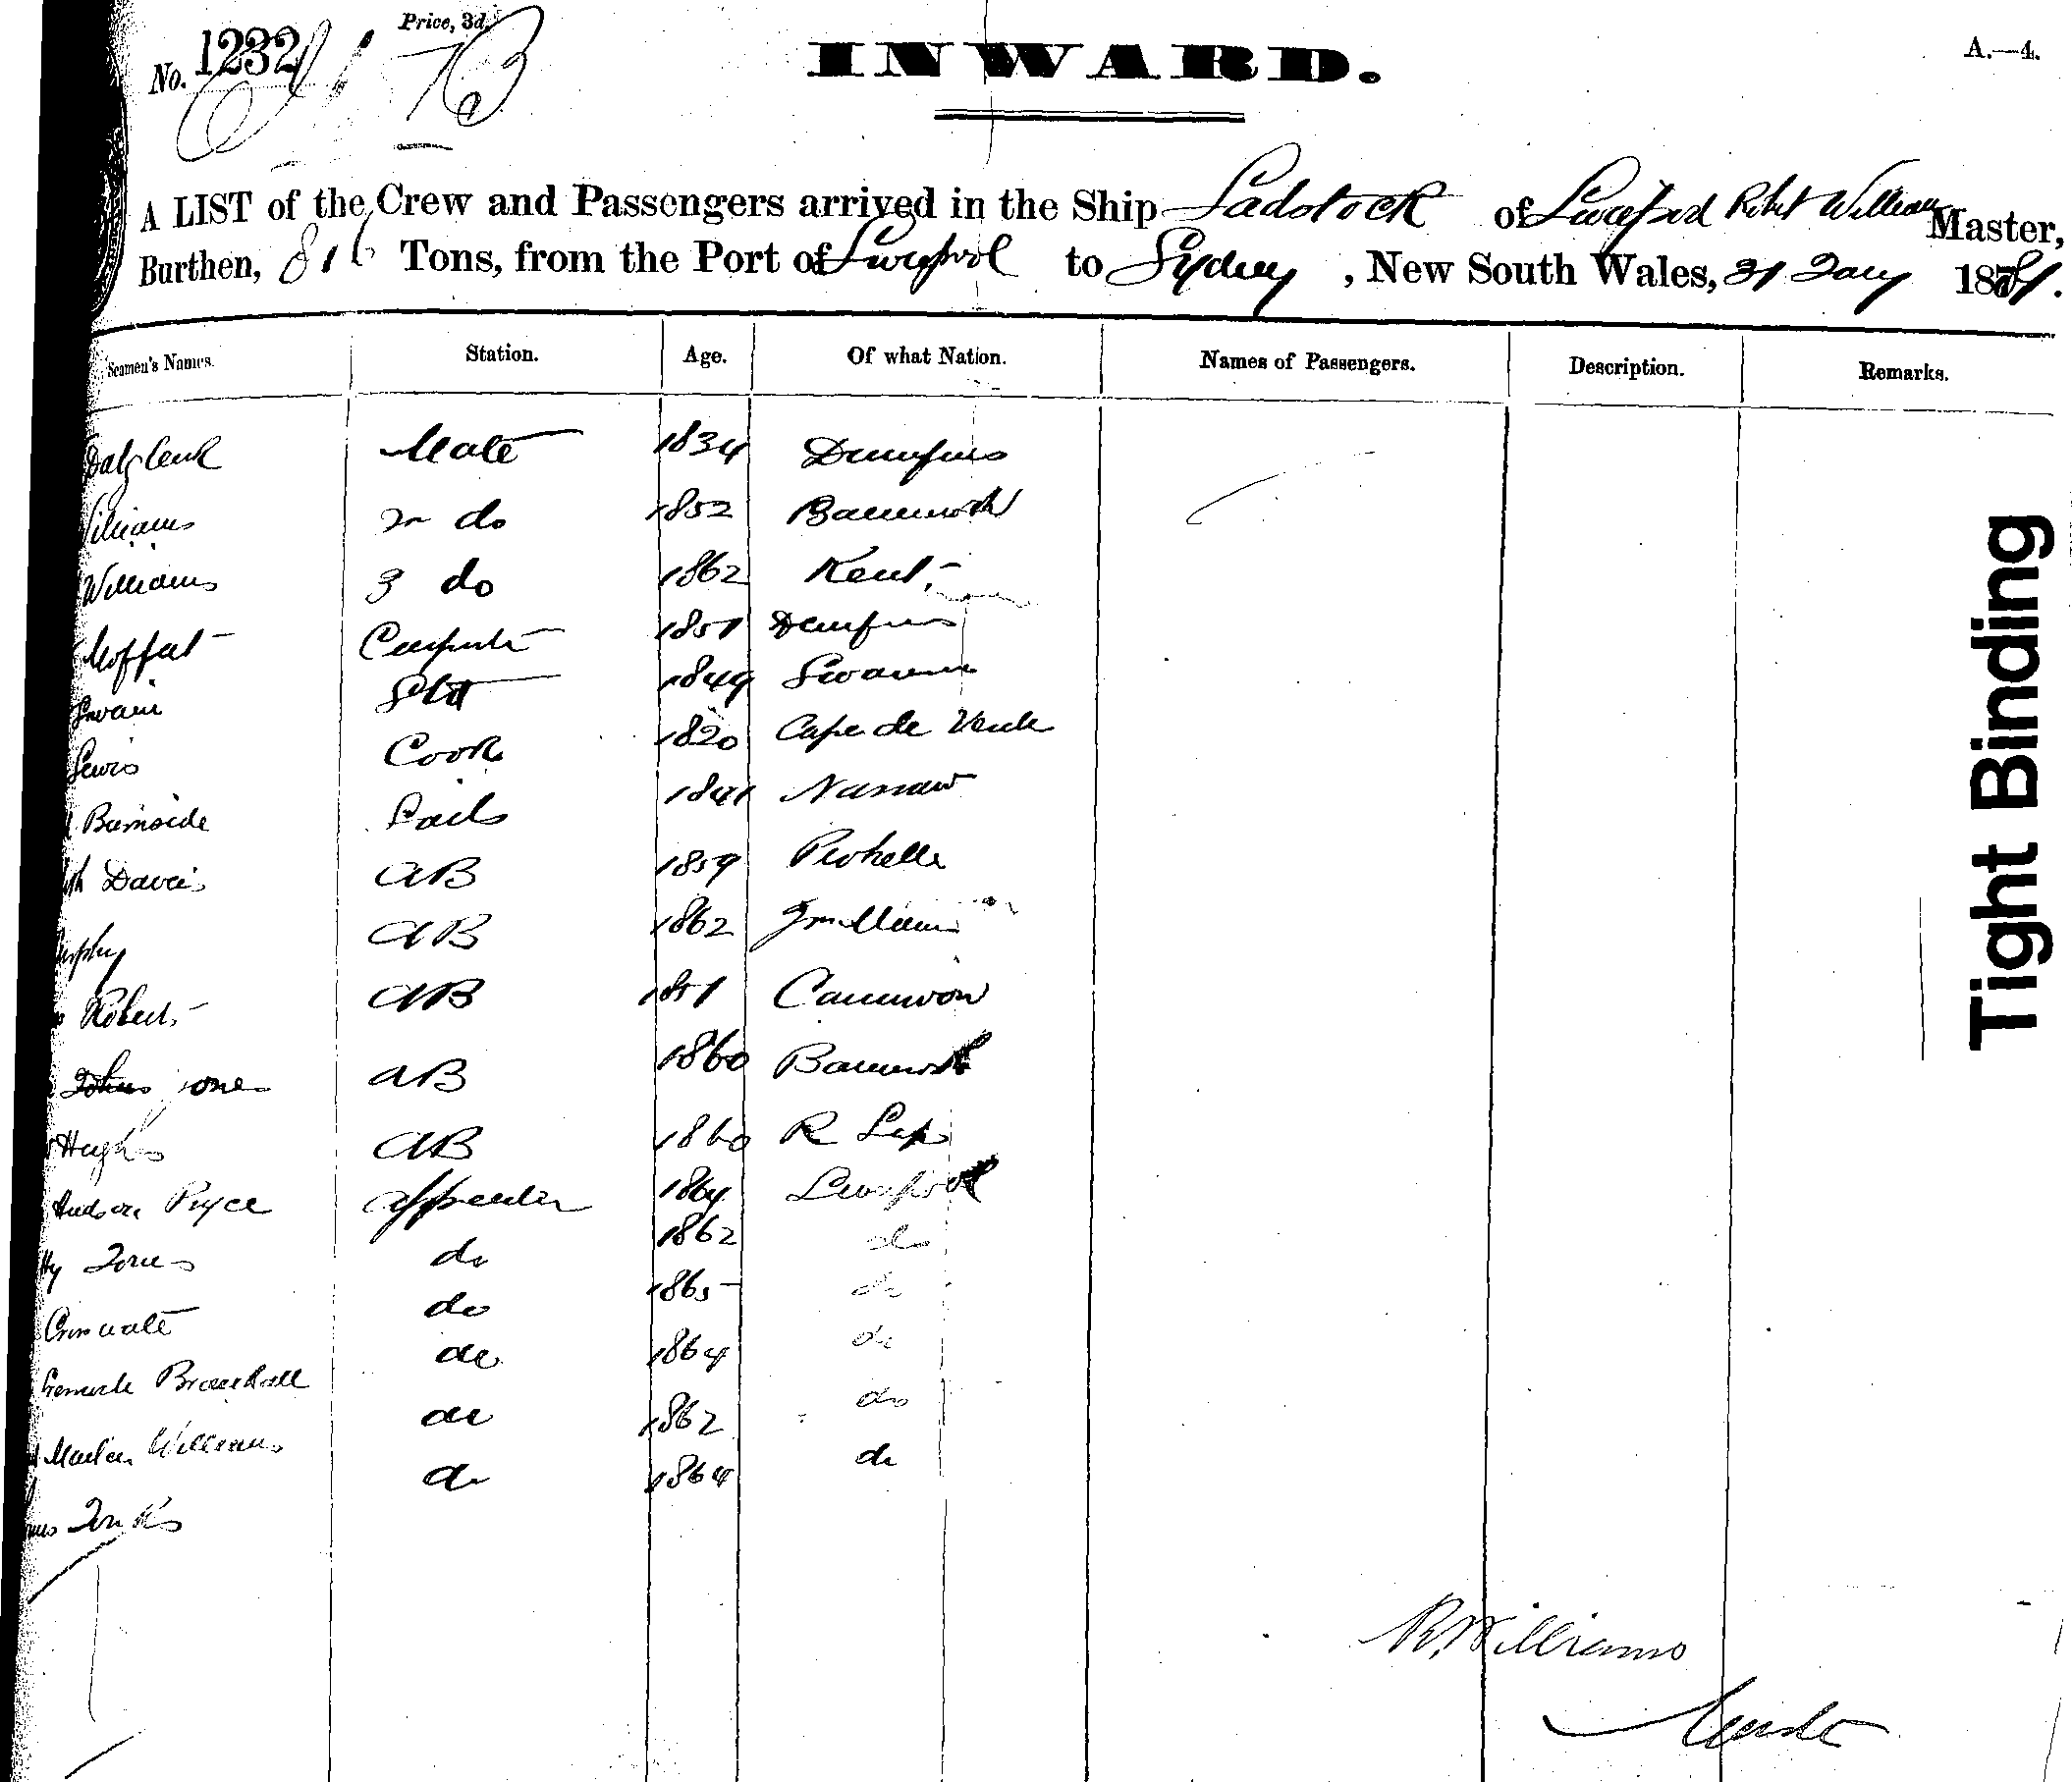 No. 1232
Price, 3d.
73
INWARD.
A.—4.
A LIST of the Crew and Passengers arrived in the Ship Ladstock of Liverpool Robt Williams Master,
Burthen, 816 Tons, from the Port of Liverpool to Sydney, New South Wales, 31 Jany 1881.
Seamen's Names. Station. Age. Of what Nation. Names of Passengers. Description. Remarks.
Mate 1834 Dumfries
Williams 2n do 1852
Williams 3 do 1862 Kent
Moffat Carpenter 1851 Dumfries
Swain Std 1849
Lewis Cook 1820 Cape de Verde
Burnside Sails 1841 Nassaw
Davies AB 1859
AB 1862
Roberts AB 1851
Jones AB 1860
Hughs AB 1860
Hudson Pryce Apprentice 1864 Liverpool
Hy Jones do 1862 do
do 1865 do
Bramhall do 1864 do
Martin Williams do 1862 do
do 1864 do
R. Williams
Master
Tight Binding